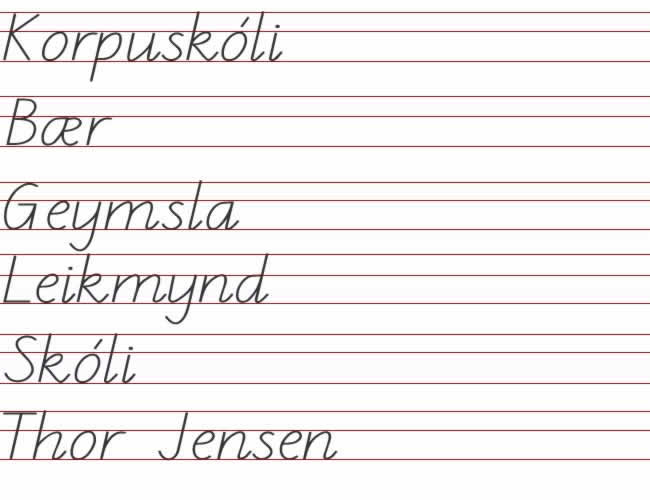 Korpuskóli
Bær
Geymsla
Leikmynd
Skóli
Thor Jensen